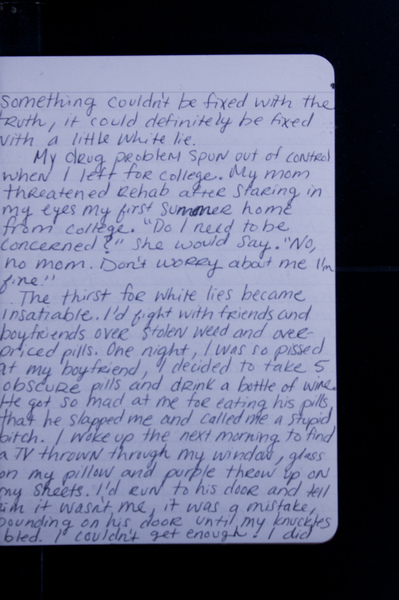 something couldn't be fixed with the
truth, it could definitely be fixed
with a little white lie.
My drug problem spun out of control
when I left for college. My mom
threatened rehab after staring in
my eyes my first summer home
from college. "Do I need to be
concerned?" she would say. "No,
no mom. Don't worry about me I'm
fine."
The thirst for white lies became
insatiable. I'd fight with friends and
boyfriends over stolen weed and over-
priced pills. One night, I was so pissed
at my boyfriend, I decided to take 5
obscure pills and drink a bottle of wine.
He got so mad at me for eating his pills
that he slapped me and called me a stupid
bitch. I woke up the next morning to find
a TV thrown through my window, glass
on my pillow and purple throw up on
my sheets. I'd run to his door and tell
him it wasn't me, it was a mistake,
pounding on his door until my knuckles
bled. I couldn't get enough. I did